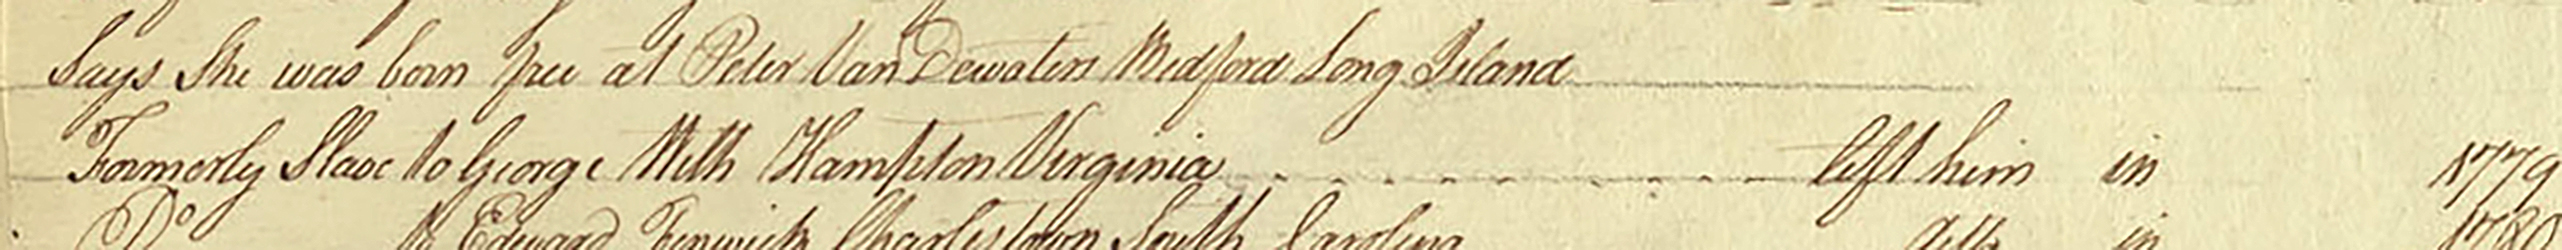 Says She was born free at Peter Van Dewaters Medford Long Island
Formerly Slave to George With Hampton Virginia left him in 1779
Do to Edward Fenwick Charlestown South Carolina ditto in 1780